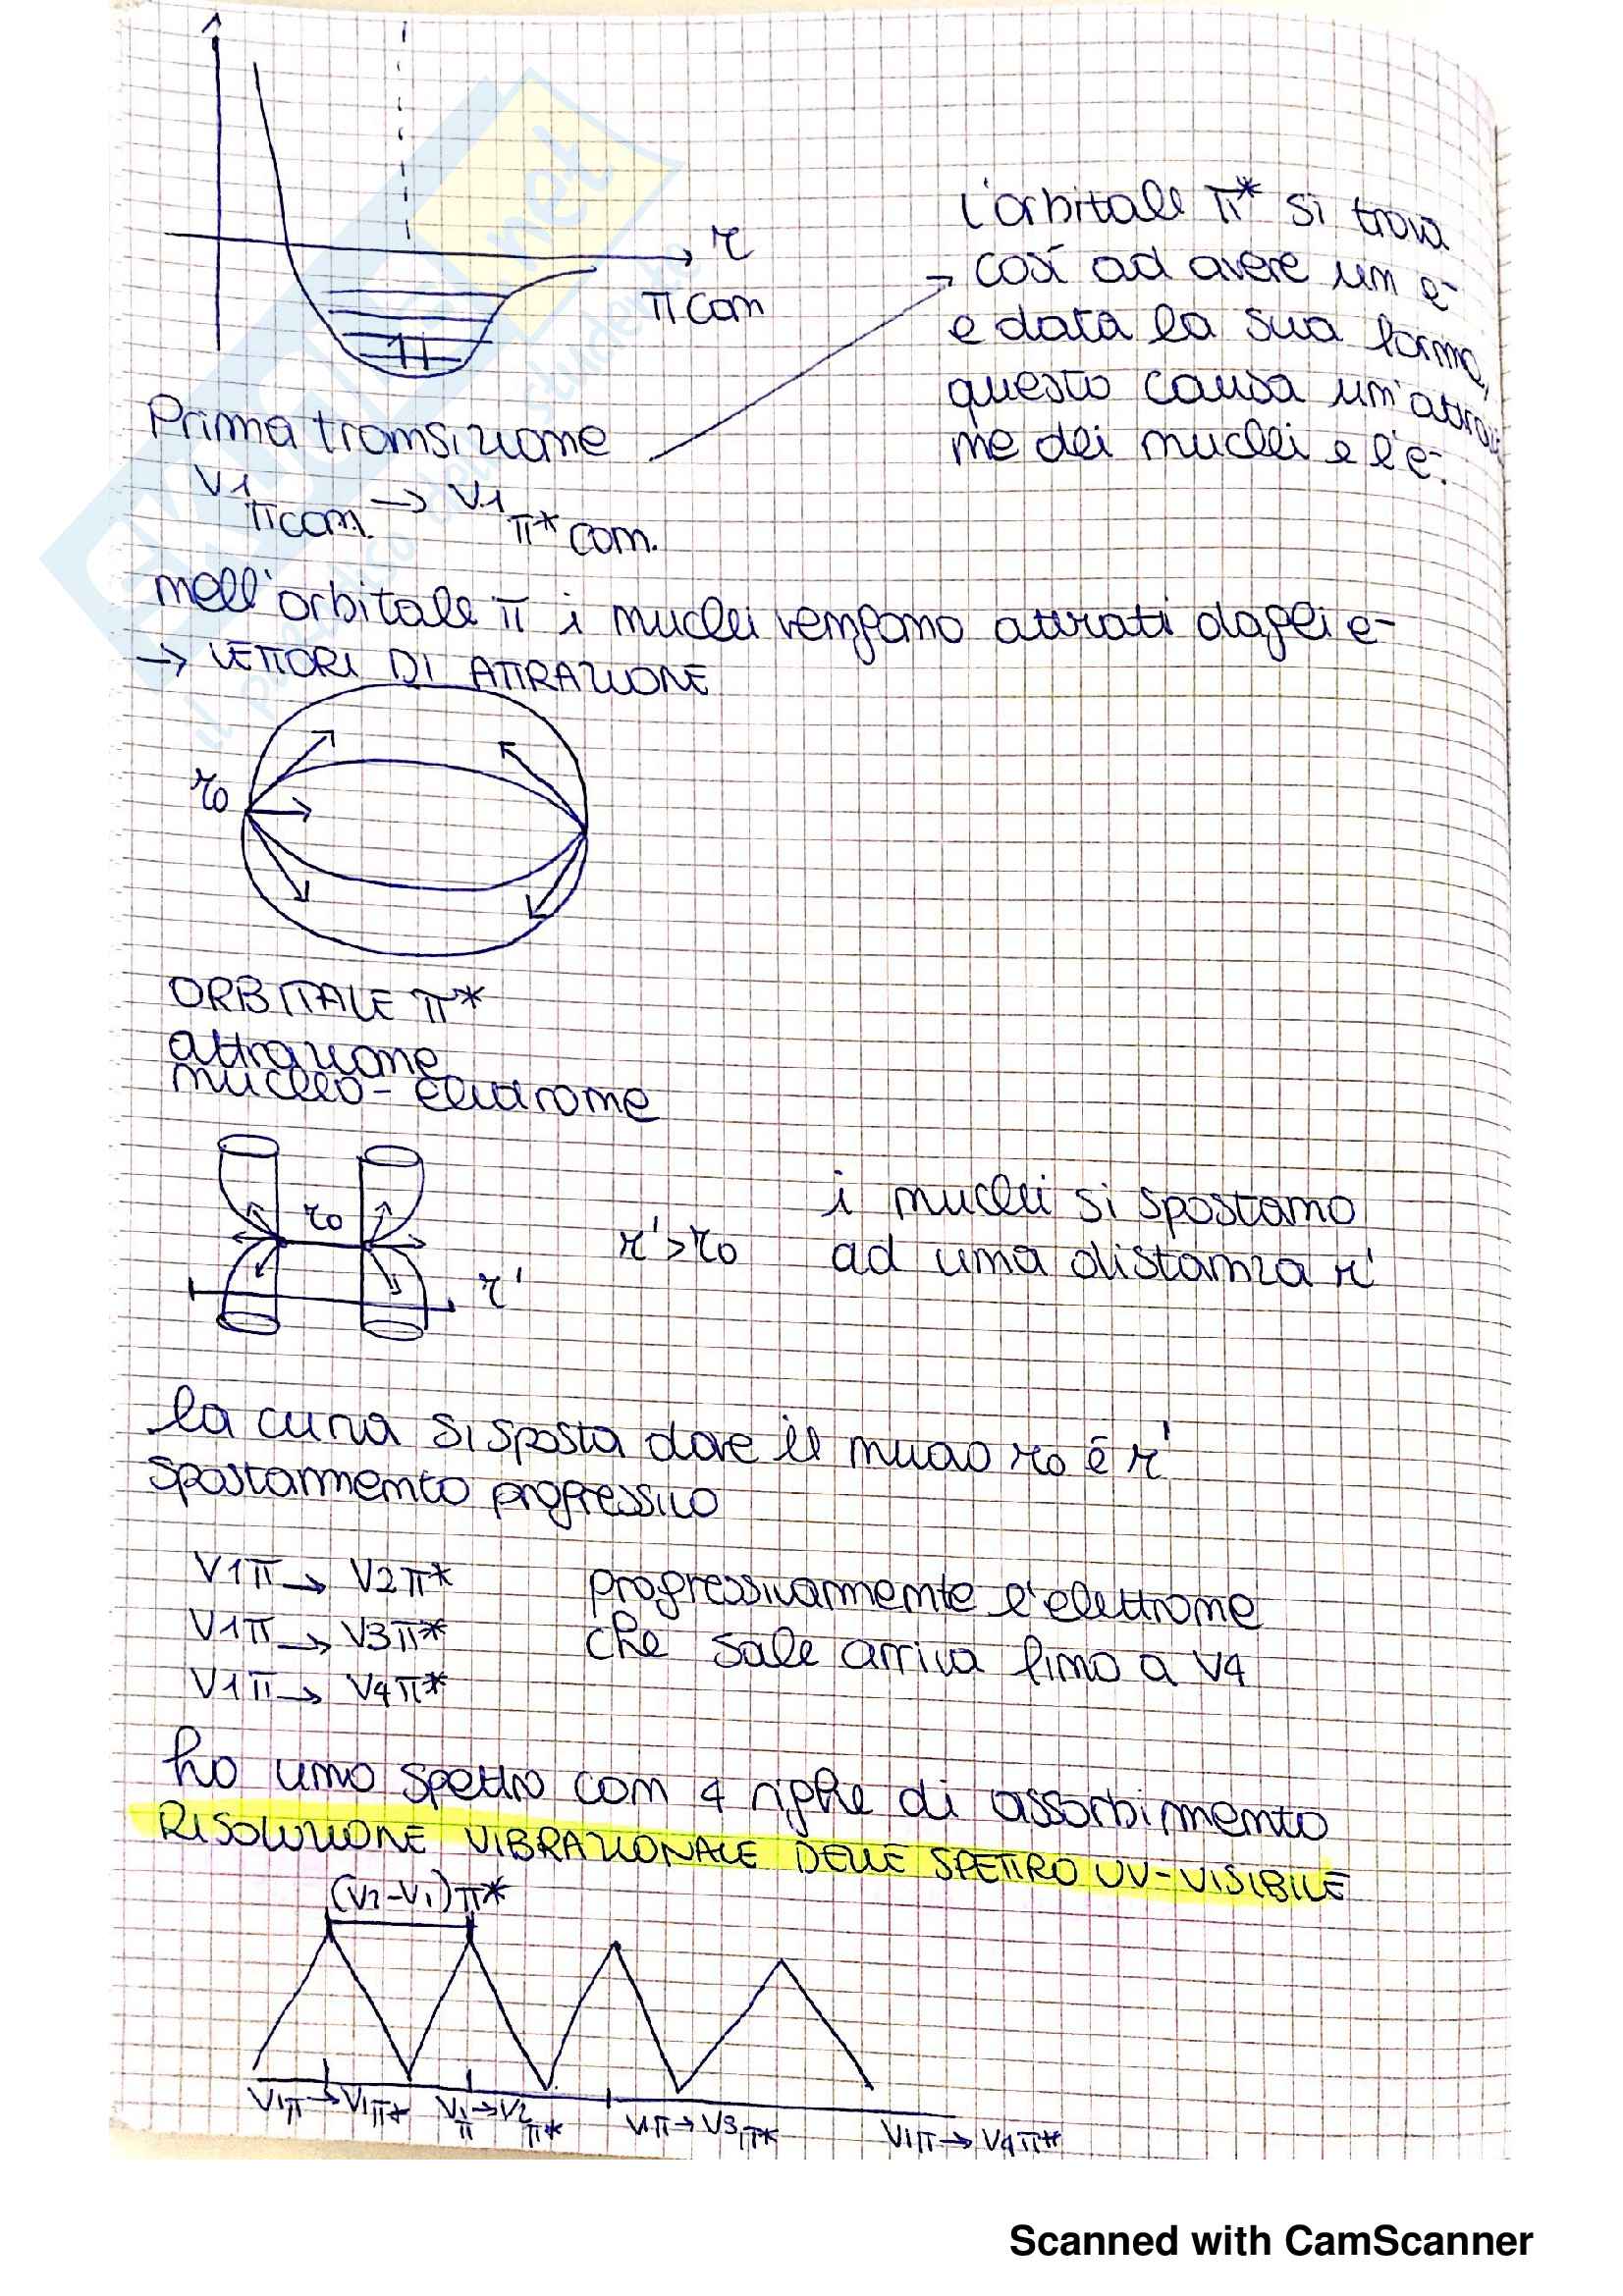 r
π con
L'orbitale π* si trova
così ad avere un e-
e data la sua forma,
questo causa un'attrazio
ne dei nuclei e l'e-.
Prima transizione
V1 π con. → V1 π* con.
nell'orbitale π i nuclei vengono attirati dagli e-
→ VETTORI DI ATTRAZIONE
r0
ORBITALE π*
attrazione
nucleo-elettrone
r0
r'
r'>r0
i nuclei si spostano
ad una distanza r'
la curva si sposta dove il nuovo r0 è r'
spostamento progressivo
V1π → V2π*
V1π → V3π*
V1π → V4π*
progressivamente l'elettrone
che sale arriva fino a V4
ho uno spettro con 4 righe di assorbimento
RISOLUZIONE VIBRAZIONALE DELLE SPETTRO UV-VISIBILE
(V2-V1)π*
V1π → V1π* V1π → V2π* V1π → V3π* V1π → V4π*
Scanned with CamScanner